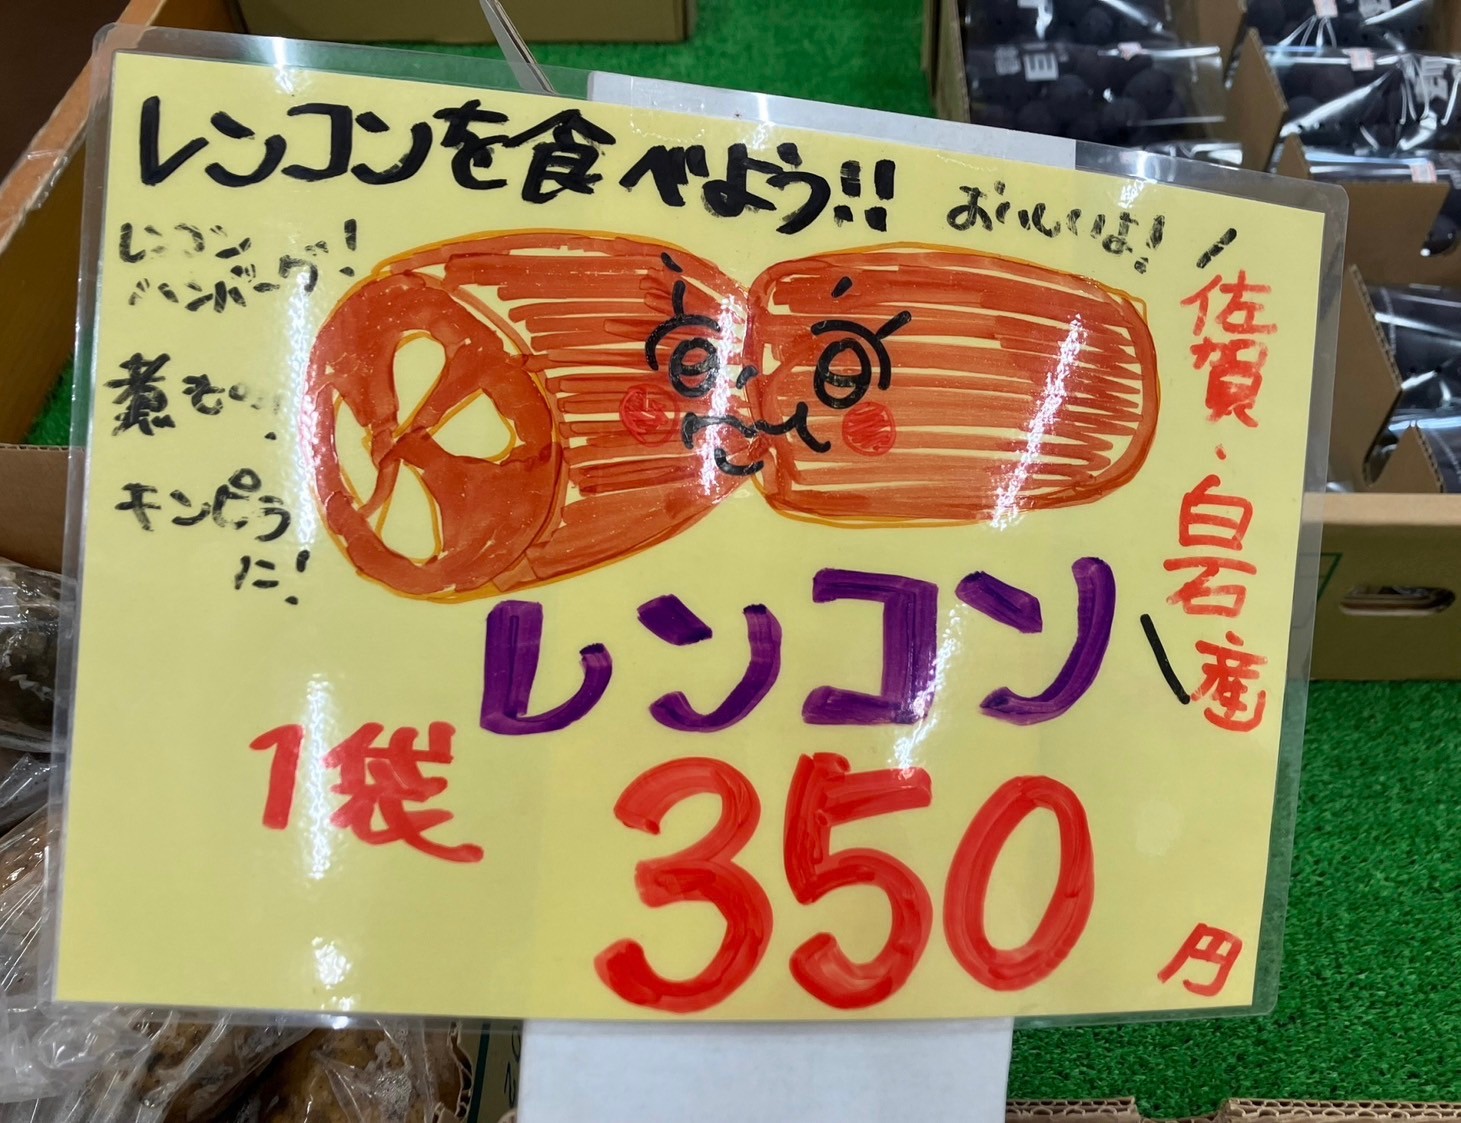 レンコンを食べよう!!
おいしいよ!
レンコン
ハンバーグ!
煮もの
キンピラ
に!
佐賀・白石産
レンコン
1袋
350
円